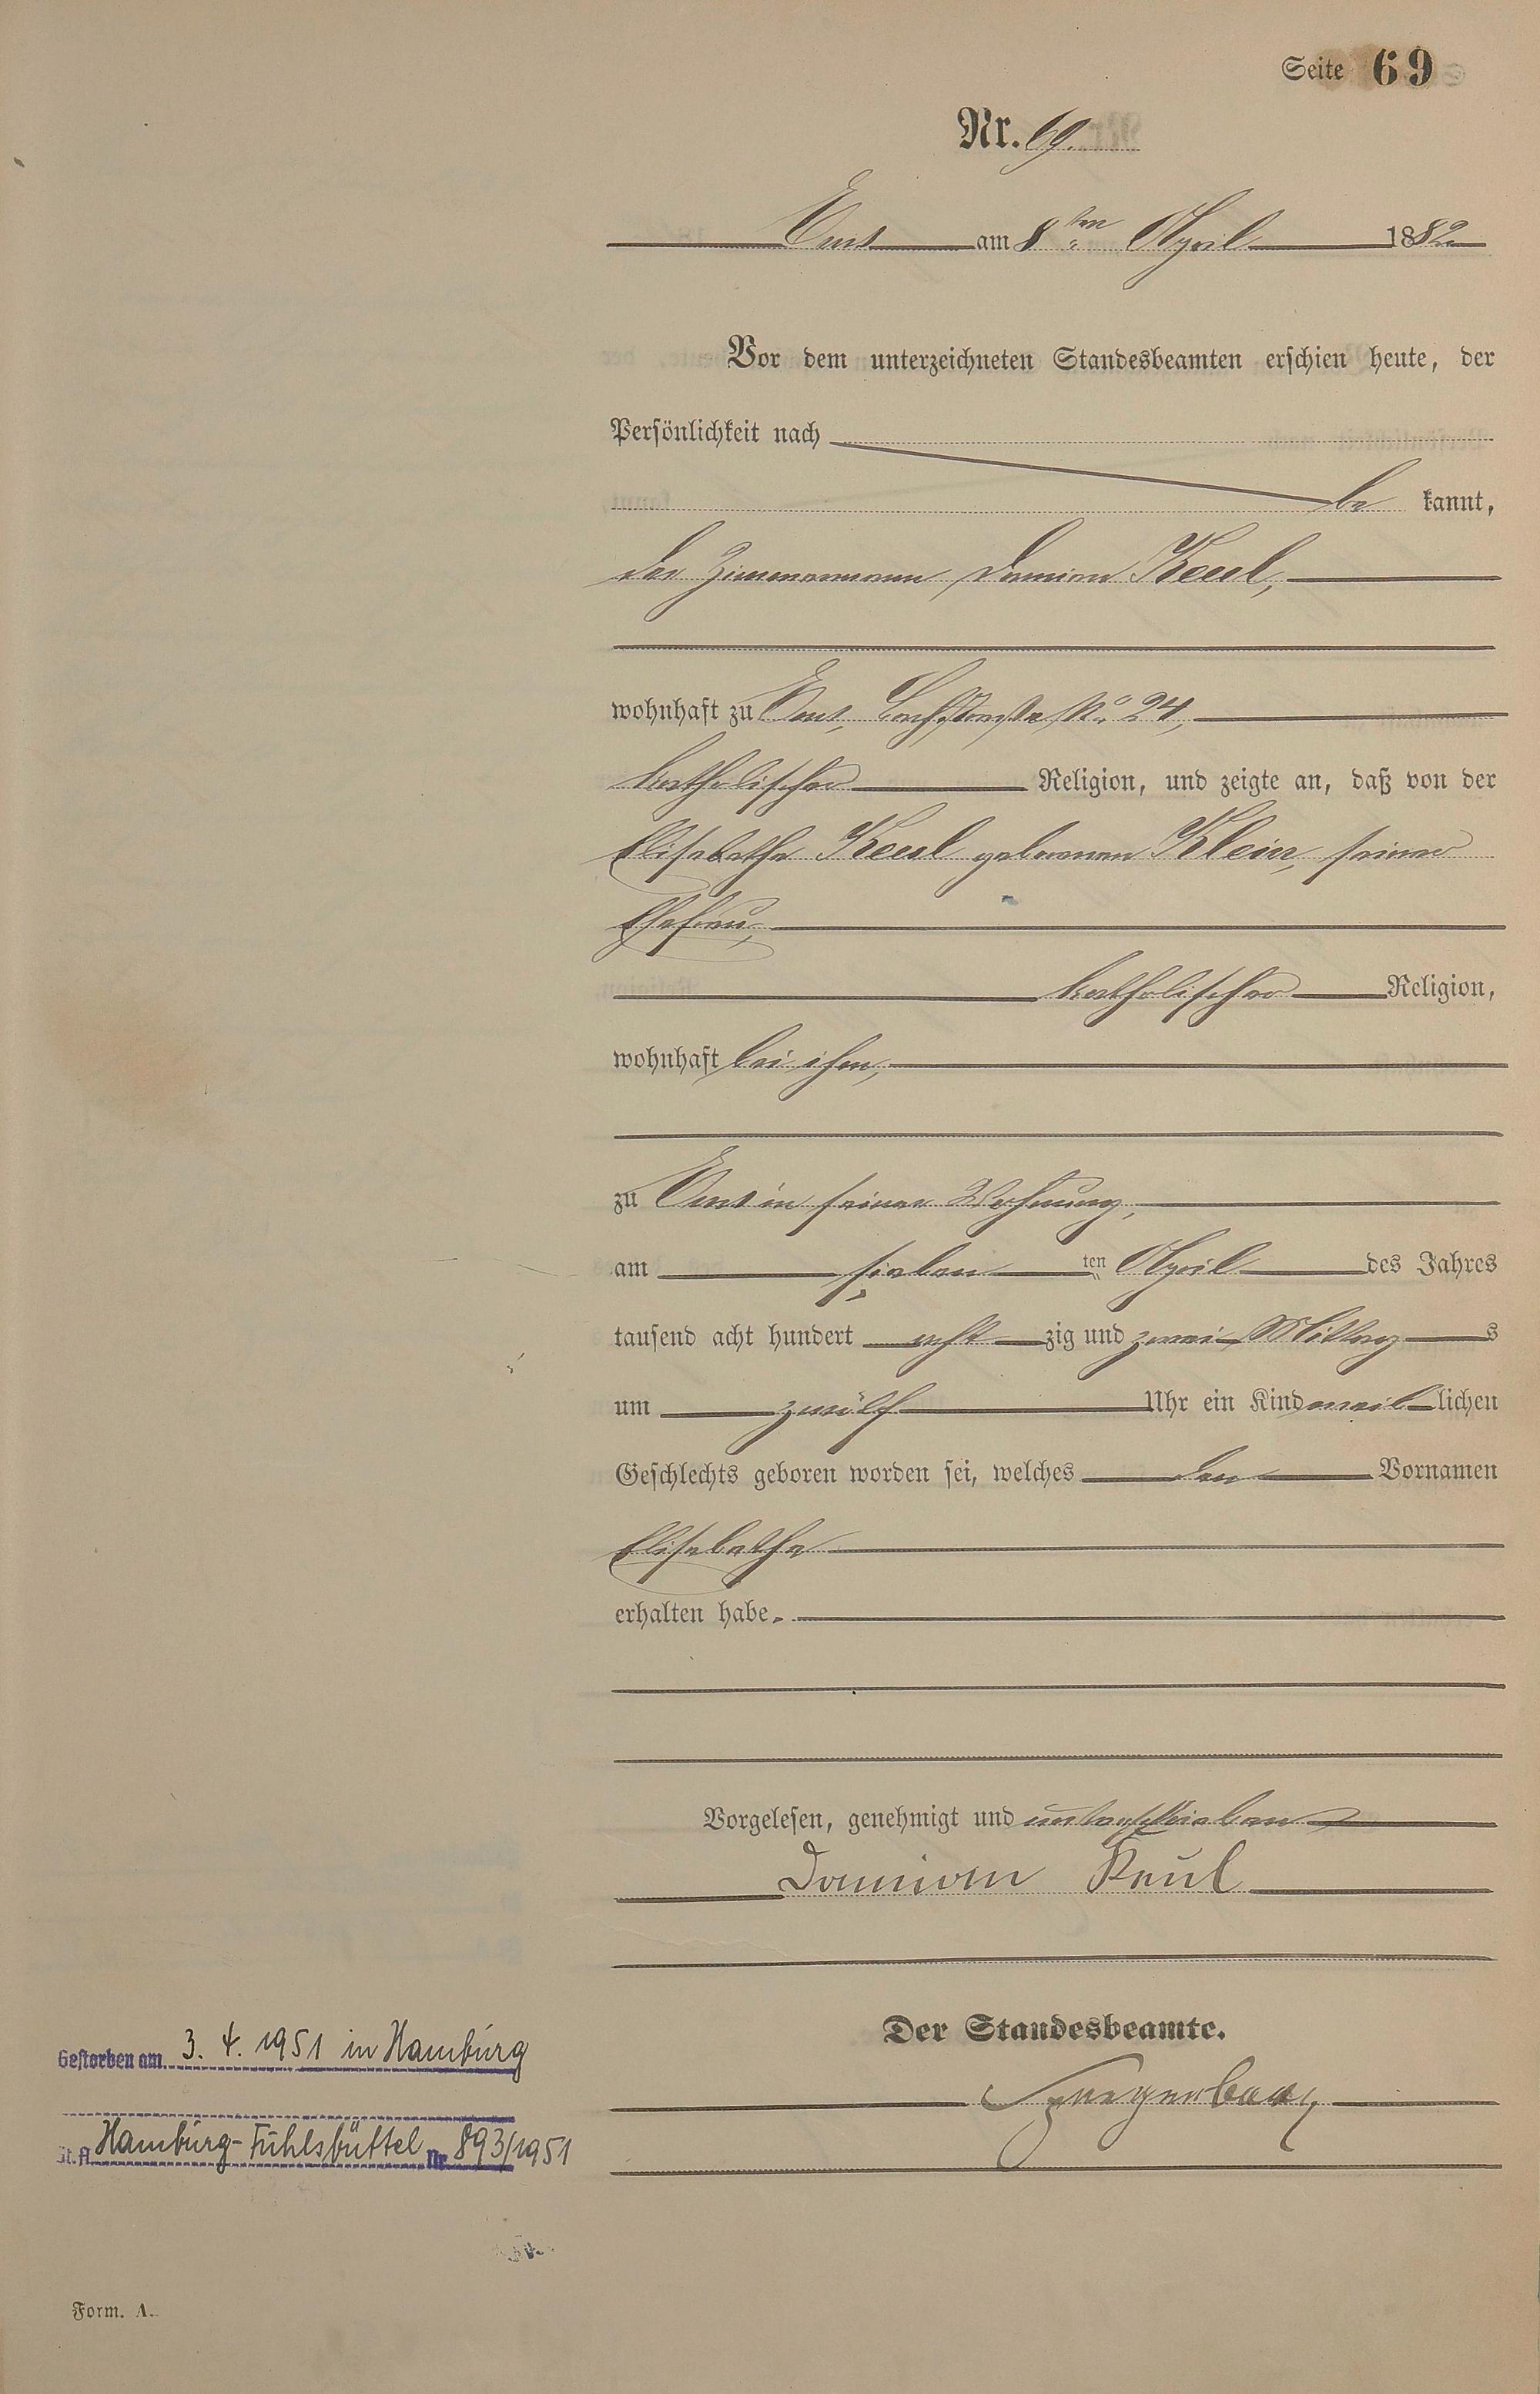 Seite 69
Nr. 69.
Ems am 8ten April 1882
Vor dem unterzeichneten Standesbeamten erschien heute, der
Persönlichkeit nach
be kannt,
der Zimmermann Damian Keul,
wohnhaft zu Ems, Bachstraße No. 24,
katholischer Religion, und zeigte an, daß von der
Elisabetha Keul geborenen Klein, seiner
Ehefrau,
katholischer Religion,
wohnhaft bei ihm,
zu Ems in seiner Wohnung,
am sieben ten April des Jahres
tausend acht hundert acht zig und zwei Mittag s
um zwölf Uhr ein Kind weib lichen
Geschlechts geboren worden sei, welches den Vornamen
Elisabetha
erhalten habe.
Vorgelesen, genehmigt und unterschrieben
Damian Keul
Der Standesbeamte.
Gestorben am 3. 4. 1951 in Hamburg
St. A. Hamburg-Fuhlsbüttel Nr. 893/1951
Form. A.